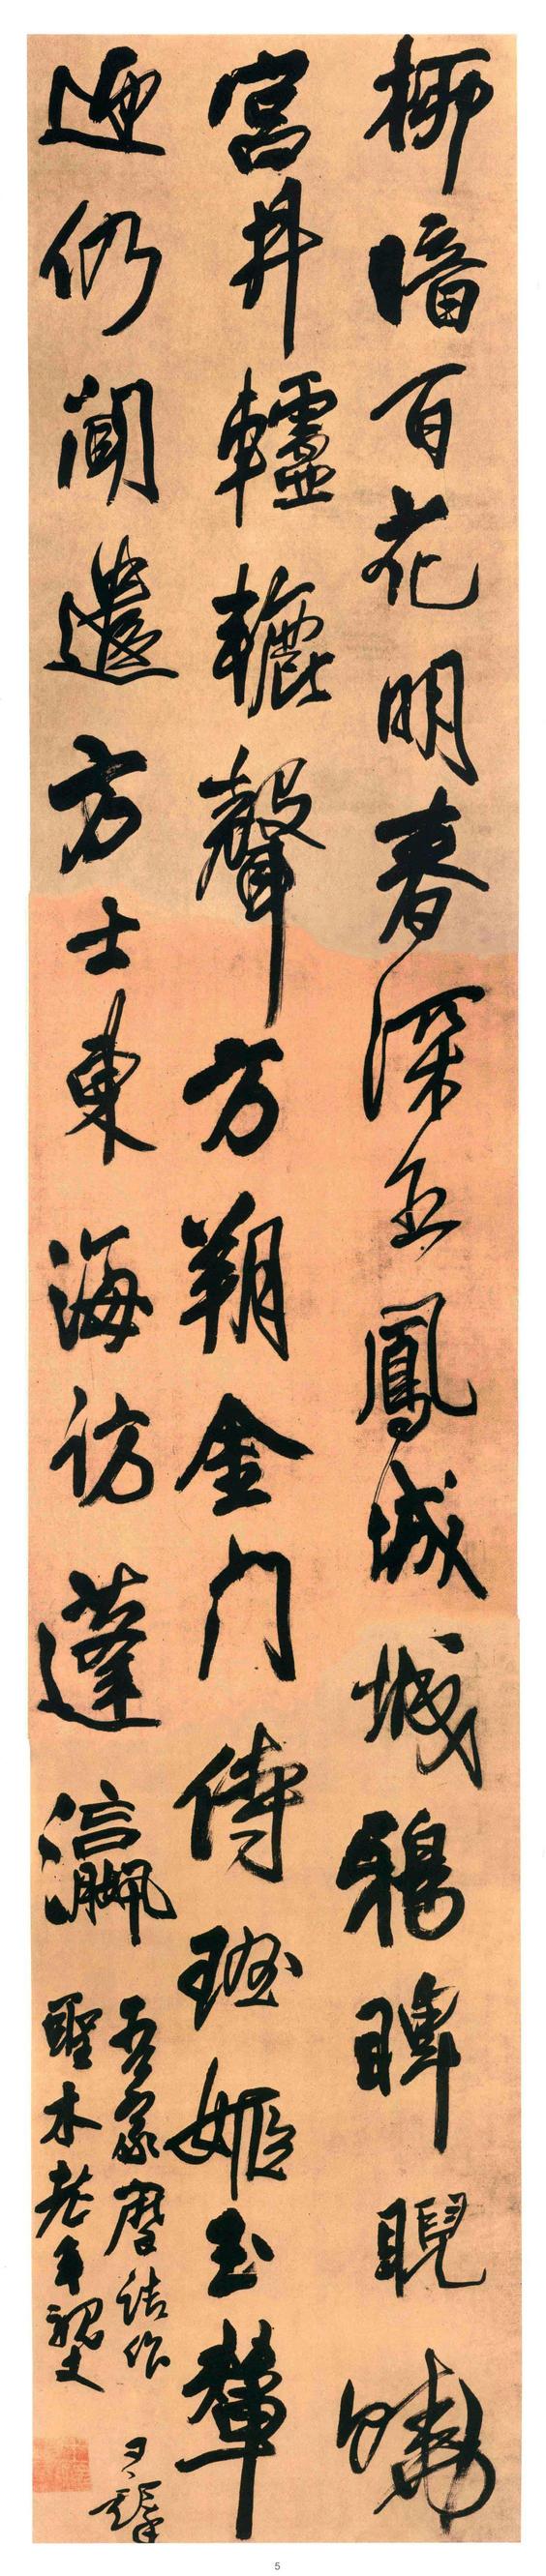 柳暗百花明春深五鳳城城鴉睥睨曉
宮井轤轆聲方朔金門侍班姬玉輦
迎仍聞遣方士東海訪蓬瀛
吾家摩詰作
聖木老年親丈
王鐸
5